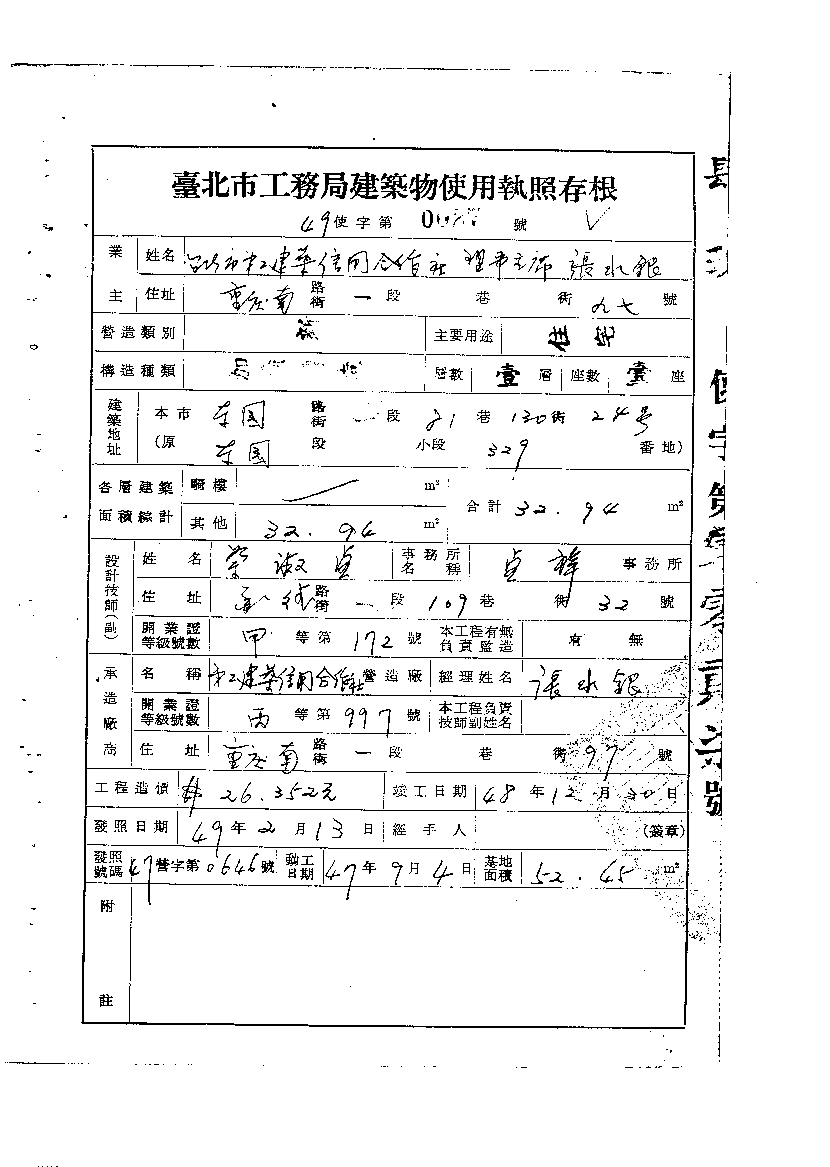 臺北市工務局建築物使用執照存根
49使字第 號
業主 姓名 建築信用合作社 理事主席 張水銀
住址 重慶南 路街 一段 巷 街 九七 號
營造類別 主要用途 住宅
構造種類 層數 壹 層 座數 壹 座
建築地址 本市 東園 路街 段 81巷 130街 24号
(原 東園 段 小段 329 番地)
各層建築面積總計 騎樓 m² 合計 32.94 m²
其他 32.94 m²
設計技師(副) 姓名 淑貞 事務所名稱 貞祥 事務所
住址 路街 一段 109巷 街 32 號
開業證等級號數 甲 等第 172 號 本工程有無負責監造 有 無
承造廠商 名稱 建築信用合作社 營造廠 經理姓名 張水銀
開業證等級號數 丙 等第 997 號 本工程負責技師副姓名
住址 重慶南 路街 一段 巷 街 97 號
工程造價 26.352元 竣工日期 48年12月30日
發照日期 49年2月13日 經手人 (簽章)
發照號碼 47營字第0646號 動工日期 47年9月4日 基地面積 52.45 m²
附註